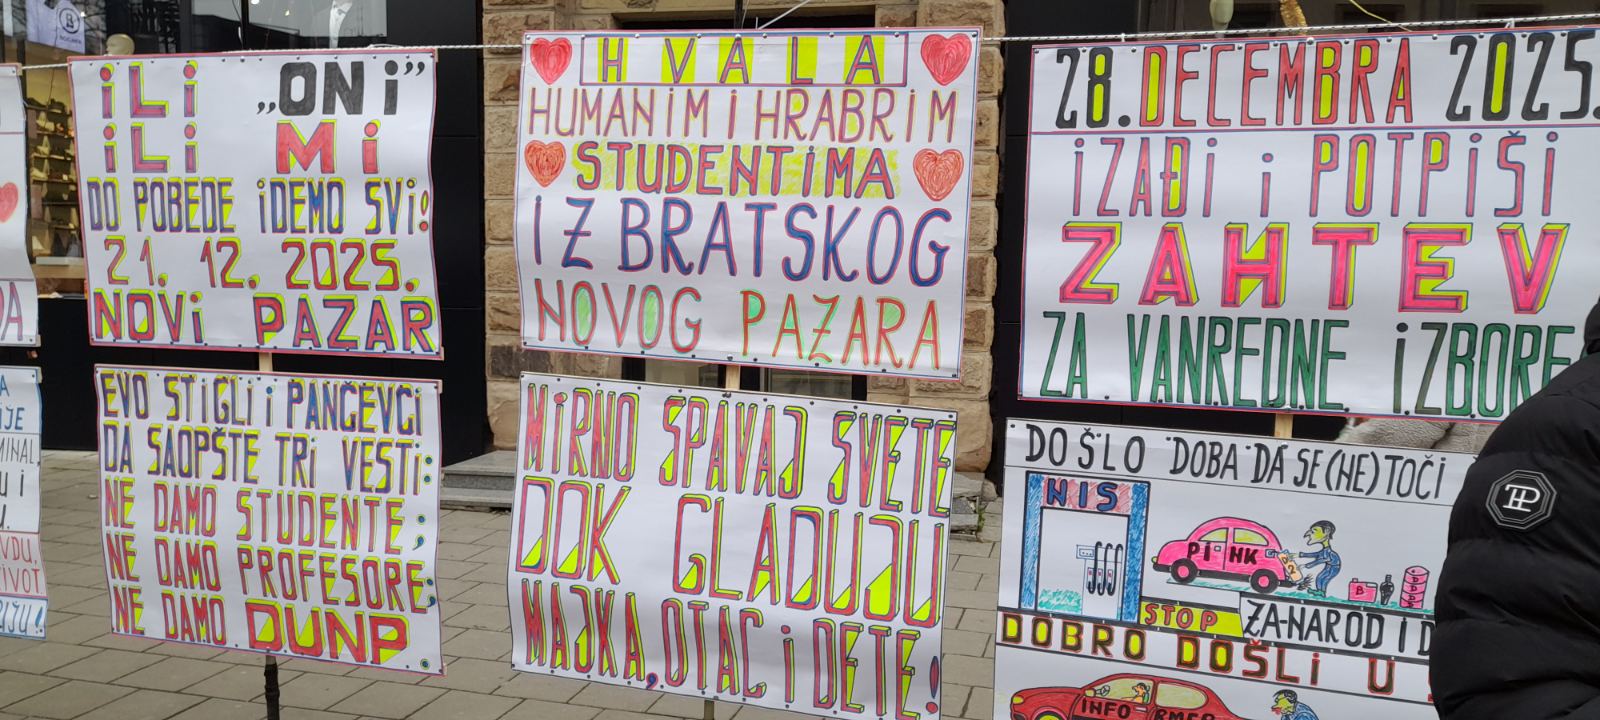 iLi „ONi”
iLi Mi
DO POBEDE iDEMO SVi!
21. 12. 2025.
NOVi PAZAR
EVO STiGLi i PANČEVCi
DA SAOPŠTE TRi VESTi:
NE DAMO STUDENTE;
NE DAMO PROFESORE;
NE DAMO DUNP
HVALA
HUMANiM i HRABRiM
STUDENTiMA
IZ BRATSKOG
NOVOG PAZARA
MiRNO SPAVAJ SVETE
DOK GLADUJU
MAJKA, OTAC i DETE!
28. DECEMBRA 2025.
iZAĐi i POTPiŠi
ZAHTEV
ZA VANREDNE iZBORE
DOŠLO DOBA DA SE (NE) TOČI
NIS
Pi NK
STOP
ZA-NAROD I
DOBRO DOŠLi U
INFO RMER
iJE
MINAL
U i
VDU,
ŽiVOT